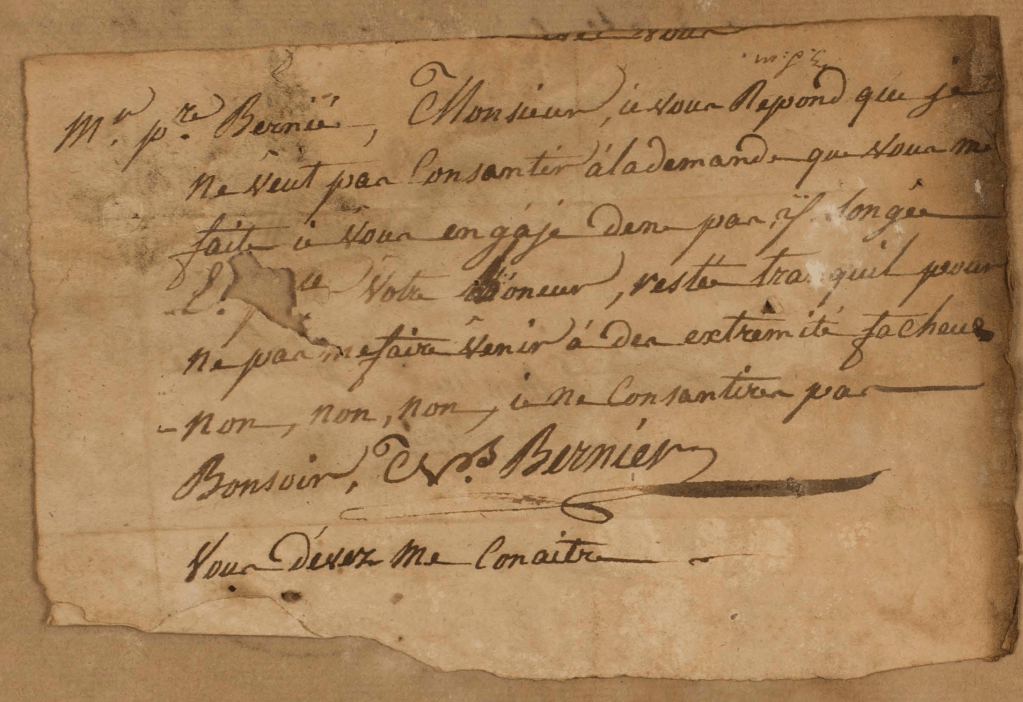 vous
M.r p.re Bernié, Monsieur, ie vous Repond que je
ne veut pas Consantir á la demande que vous me
faite ie vous engáje dene pas y songée
votre honeur, restée tranquil pour
né pas me faire venir á des extrémité facheus
non, non, non, ie ne Consantires pas
Bonsoir, Bernier
Vous dévez me Conaitre